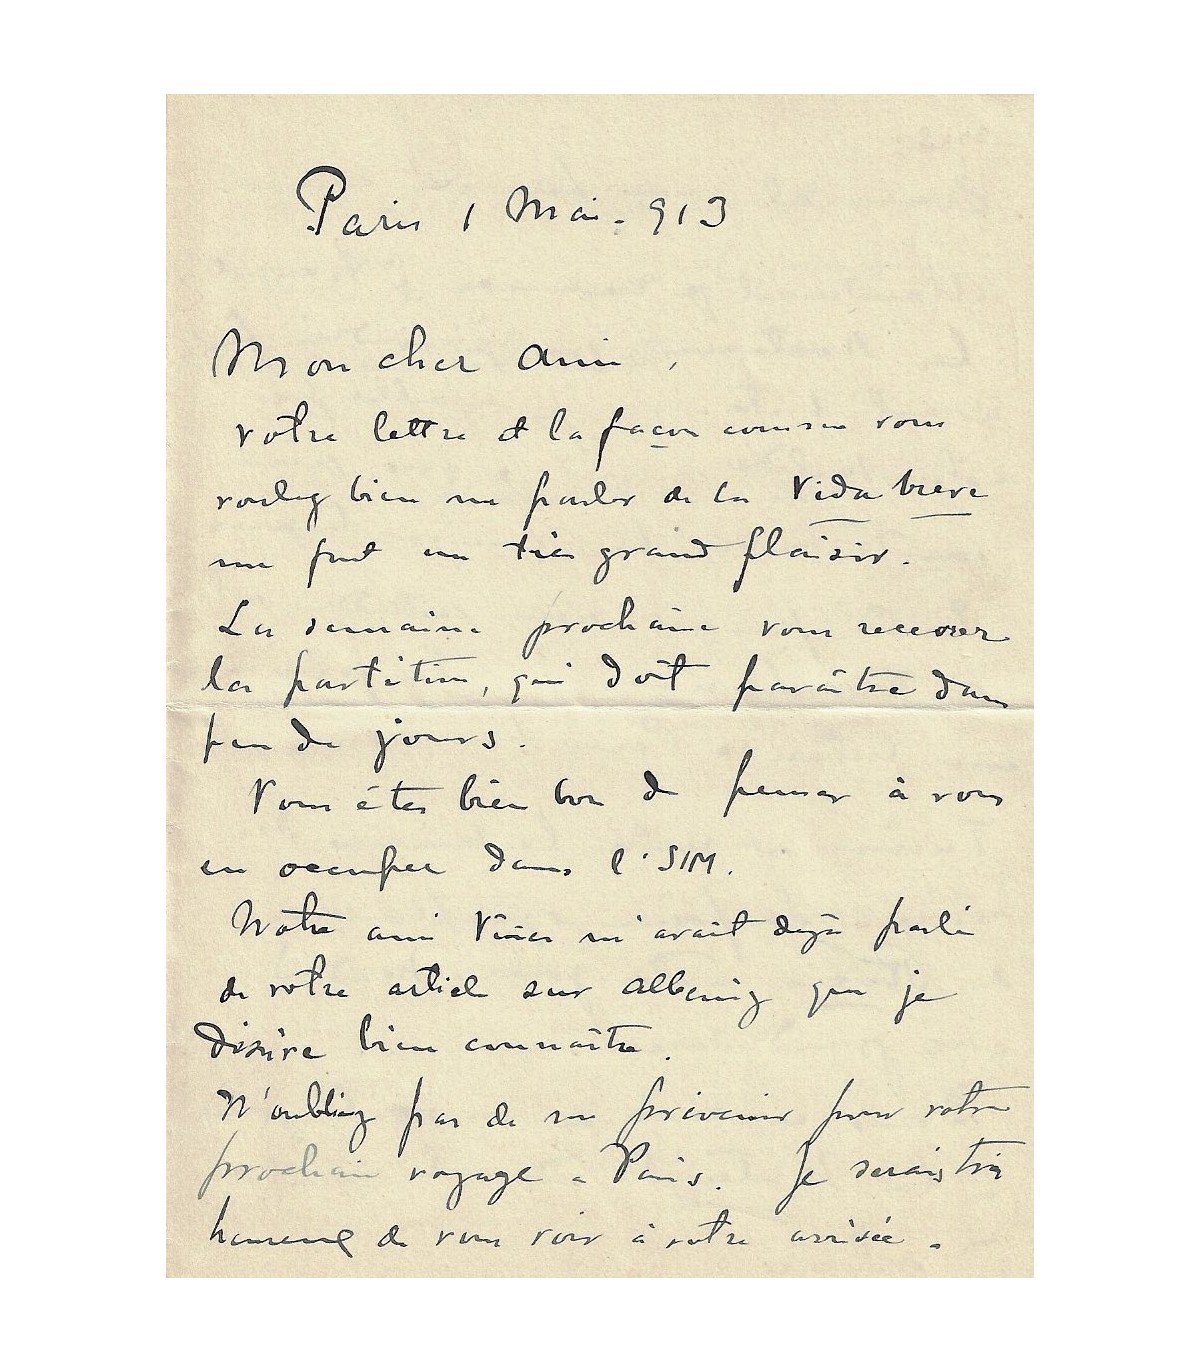 Paris 1 Mai. 913
Mon cher ami,
votre lettre et la façon comme vous
voulez bien me parler de la Vida breve
me font un très grand plaisir.
La semaine prochaine vous recevrez
la partition, qui doit paraître dans
peu de jours.
Vous êtes bien bon de penser à vous
en occuper dans l'SIM.
Notre ami Viñes m'avait déjà parlé
de votre article sur Albeniz que je
désire bien connaître.
N'oubliez pas de me prévenir pour votre
prochain voyage a Paris. Je serais très
heureux de vous voir à votre arrivée.